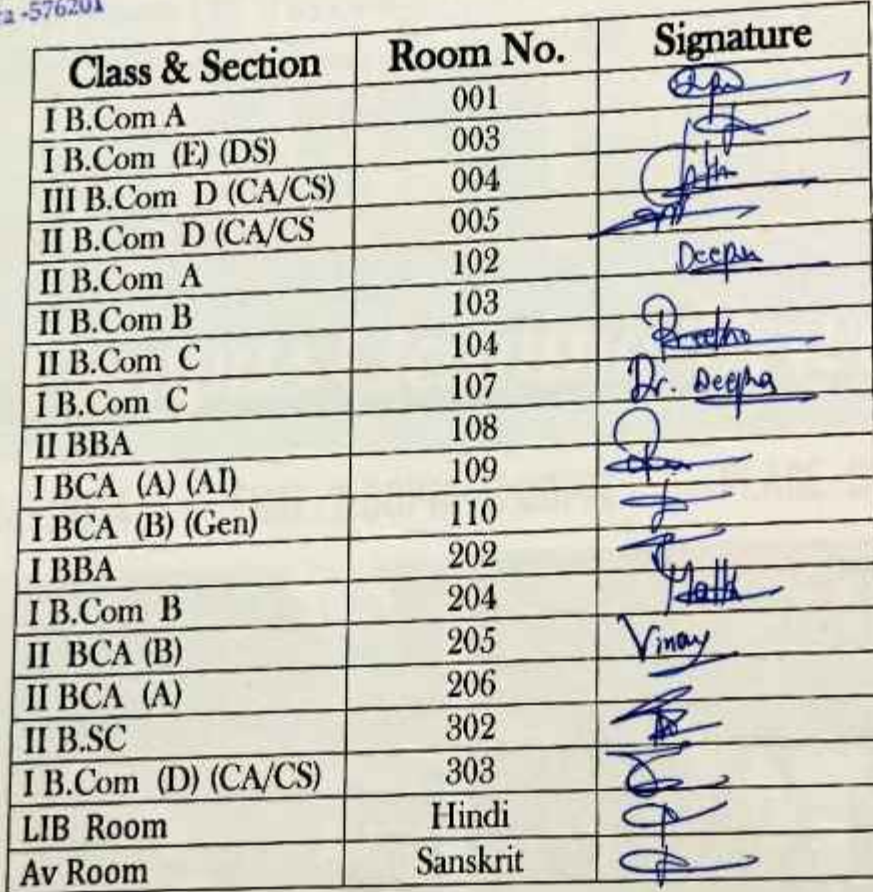 -576201
Class & Section Room No. Signature
I B.Com A 001
I B.Com (E) (DS) 003
III B.Com D (CA/CS) 004
II B.Com D (CA/CS 005
II B.Com A 102 Deepa
II B.Com B 103
II B.Com C 104
I B.Com C 107 Dr. Deepa
II BBA 108
I BCA (A) (AI) 109
I BCA (B) (Gen) 110
I BBA 202
I B.Com B 204
II BCA (B) 205 Vinay
II BCA (A) 206
II B.SC 302
I B.Com (D) (CA/CS) 303
LIB Room Hindi
Av Room Sanskrit